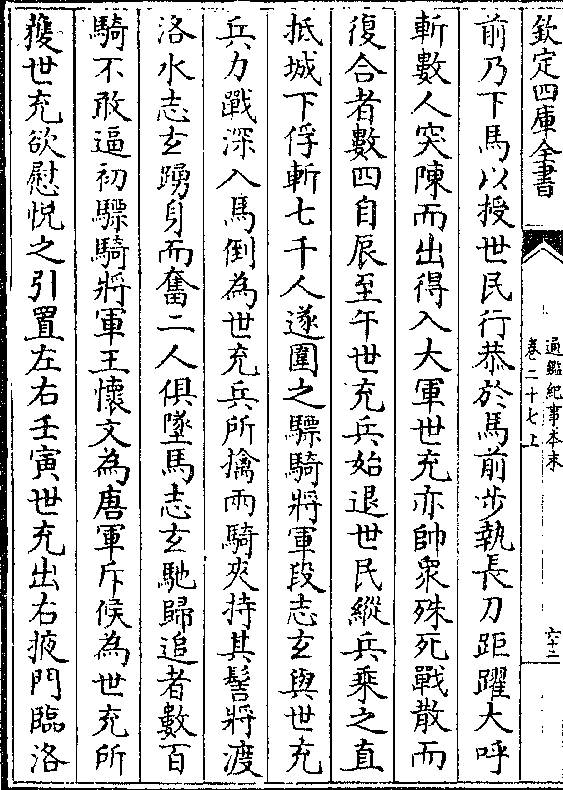 欽定四庫全書
通鑑紀事本末
卷二十七上
六十二
前乃下馬以授世民行恭於馬前步執長刀距躍大呼
斬數人突陳而出得入大軍世充亦帥衆殊死戰散而
復合者數四自辰至午世充兵始退世民縱兵乘之直
抵城下俘斬七千人遂圍之驃騎將軍段志玄與世充
兵力戰深入馬倒為世充兵所擒兩騎夾持其髻將渡
洛水志玄踴身而奮二人俱墜馬志玄馳歸追者數百
騎不敢逼初驃騎將軍王懷文為唐軍斥候為世充所
獲世充欲慰悅之引置左右壬寅世充出右掖門臨洛